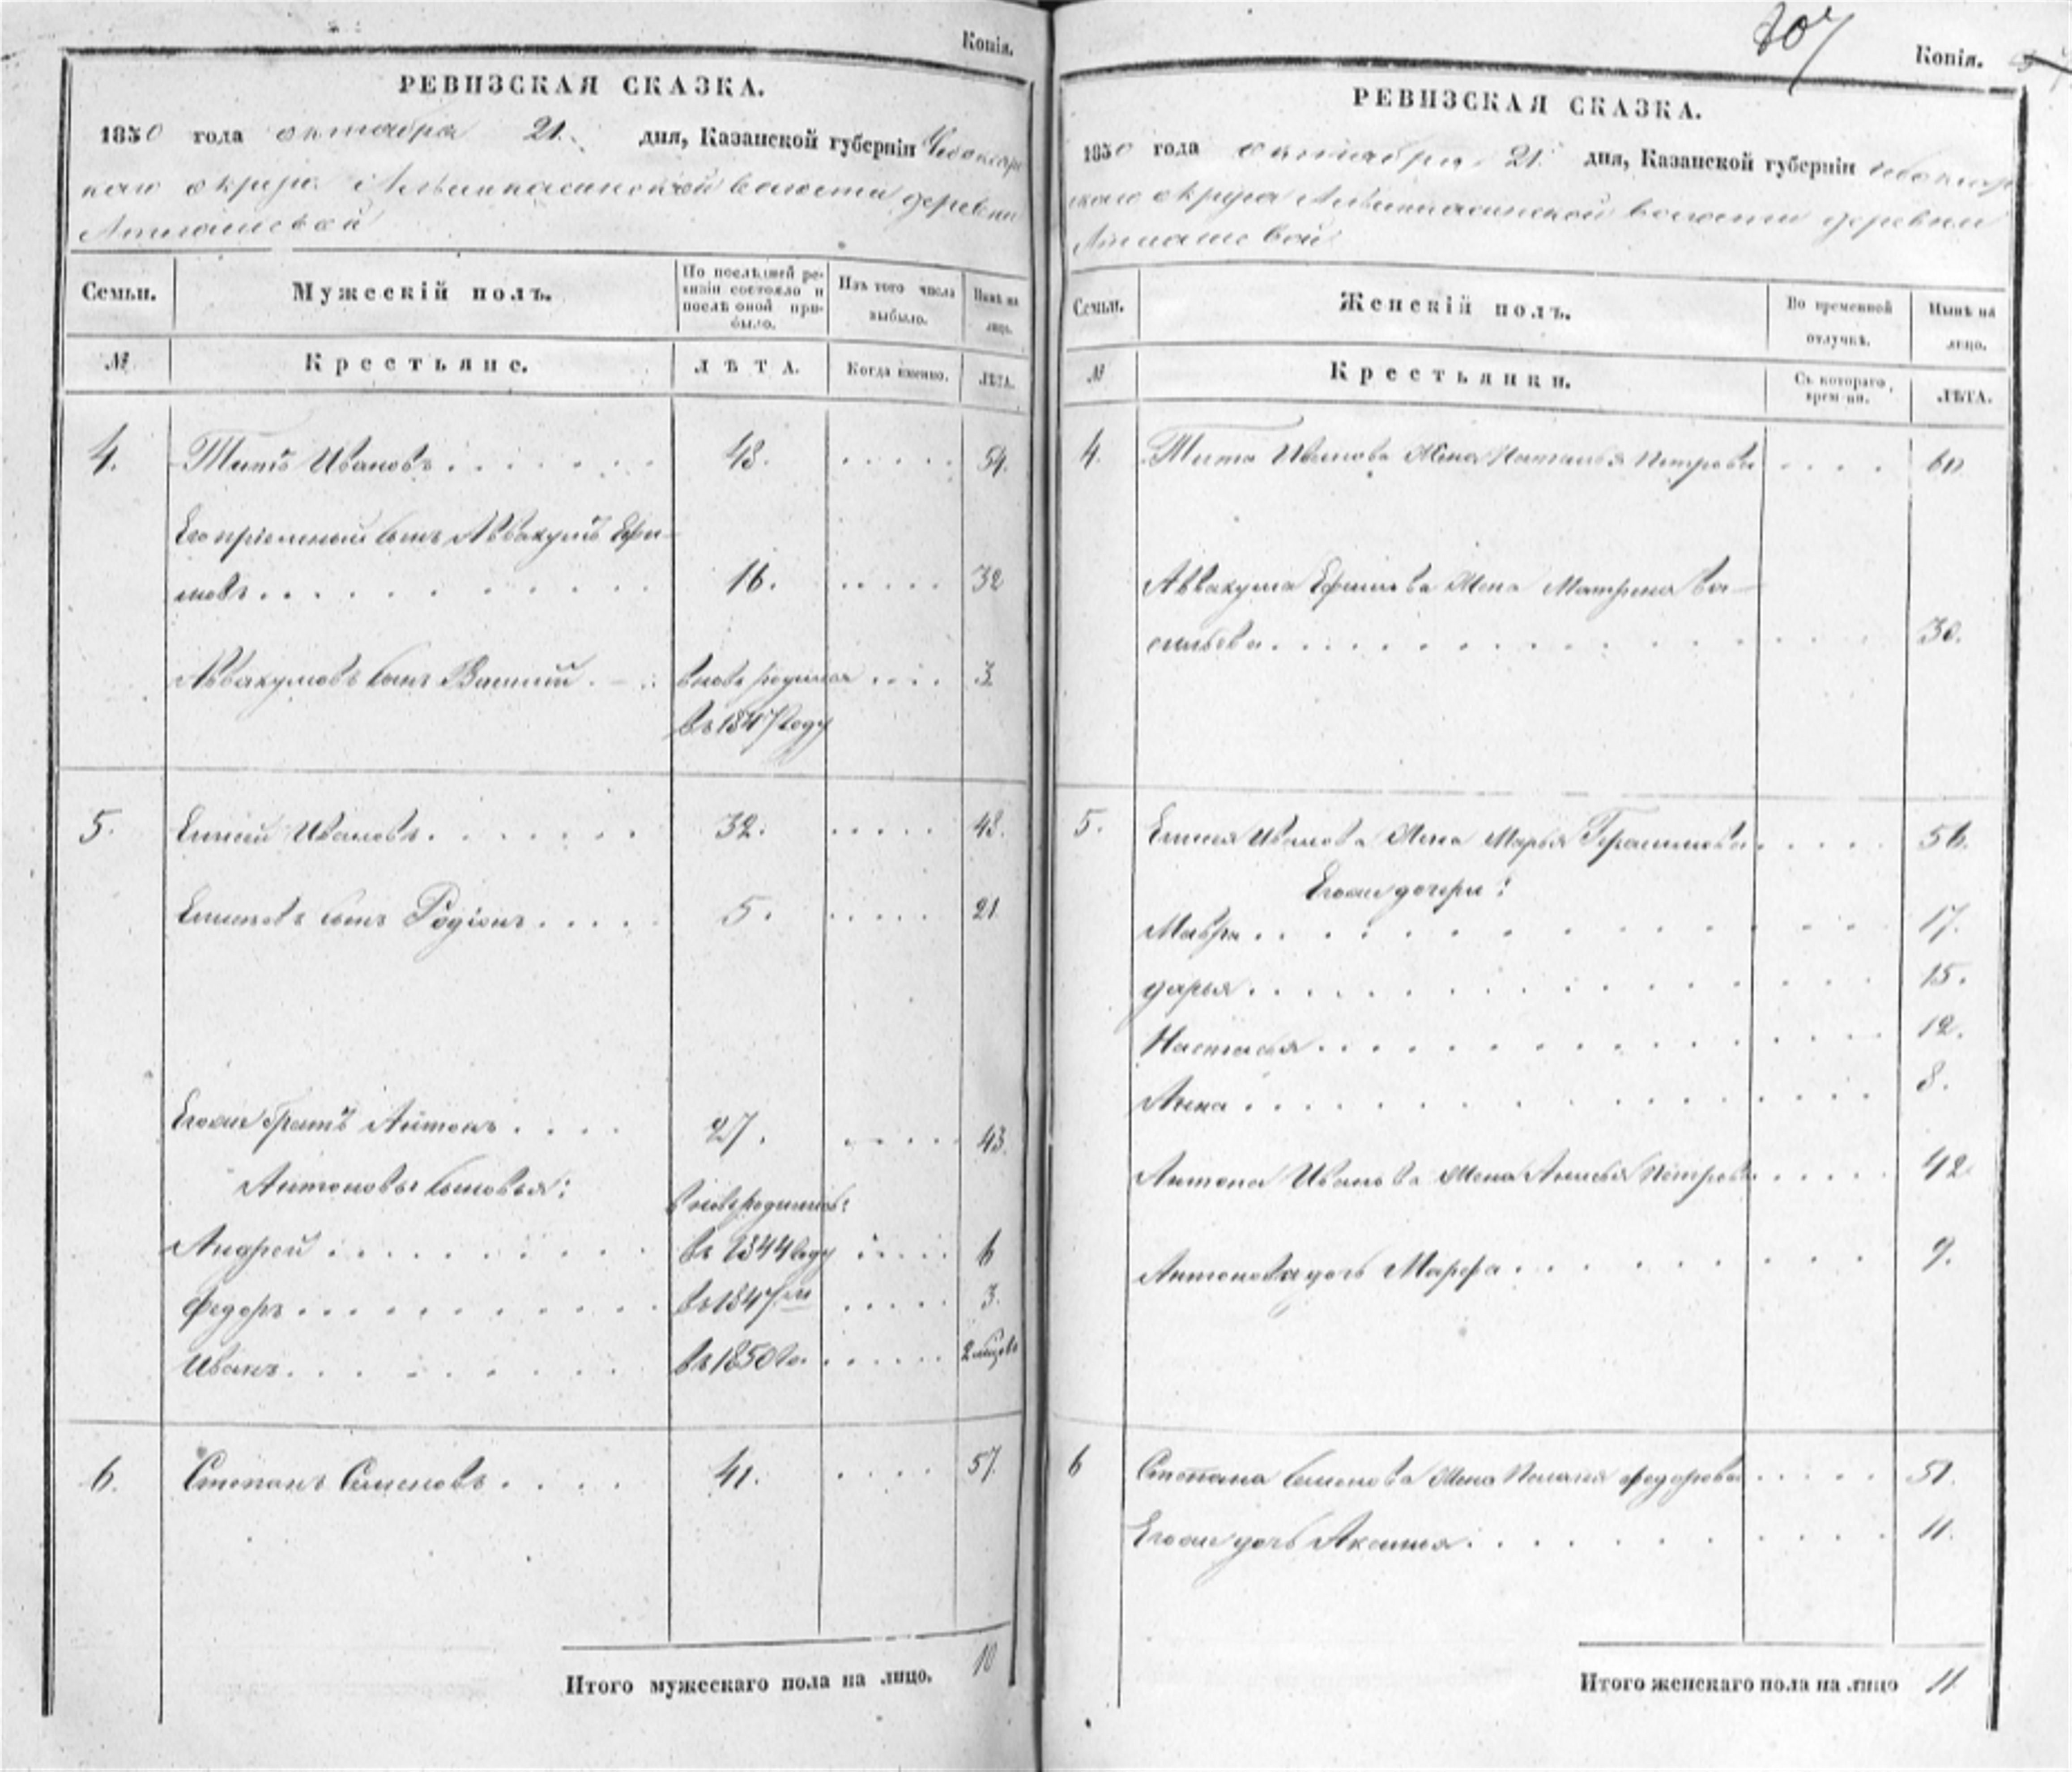 Копія.
РЕВИЗСКАЯ СКАЗКА.
1850 года октября 21. дня, Казанской губерніи Чебоксар
скаго округа волости деревни
Семьи.
Мужескій полъ.
По послѣдней ре-
визіи состояло и
послѣ оной при-
было.
Изъ того числа
выбыло.
Нынѣ на
лицо.
№
Крестьяне.
ЛѢТА.
Когда именно.
ЛѢТА.
4. Титъ Ивановъ 48. 54.
Его пріемный сынъ Аввакумъ Ефи-
мовъ 16. 32
Аввакумовъ сынъ Василій вновь родился 3
въ 1847 году
5. Елисей Ивановъ 32. 48.
Елисеевъ сынъ Родіонъ 5. 21
Его же братъ Антонъ 27. 43.
Антоновы сыновья: вновь родились:
Андрей въ 1844 году 6
Федоръ въ 1847 3.
Иванъ въ 1850 2 мѣсяца
6. Степанъ Семеновъ 41. 57.
Итого мужескаго пола на лицо. 10
207
Копія.
РЕВИЗСКАЯ СКАЗКА.
1850 года октября 21. дня, Казанской губерніи Чебоксар
скаго округа волости деревни
Семьи.
Женскій полъ.
Во временной
отлучкѣ.
Нынѣ на
лицо.
№
Крестьянки.
Съ котораго
времени.
ЛѢТА.
4. Тита Иванова Жена Наталья Петрова 60
Аввакума Ефимова Жена Матрена Ва-
сильева 30.
5. Елисея Иванова Жена Марья Герасимова 56.
Его же дочери:
Мавра 17.
Дарья 15.
Настасья 12.
Анна 8.
Антона Иванова Жена Анисья Петрова 42
Антонова дочь Марфа 9.
6 Степана Семенова Жена Федорова 51.
Его же дочь Аксинья 11.
Итого женскаго пола на лицо 11